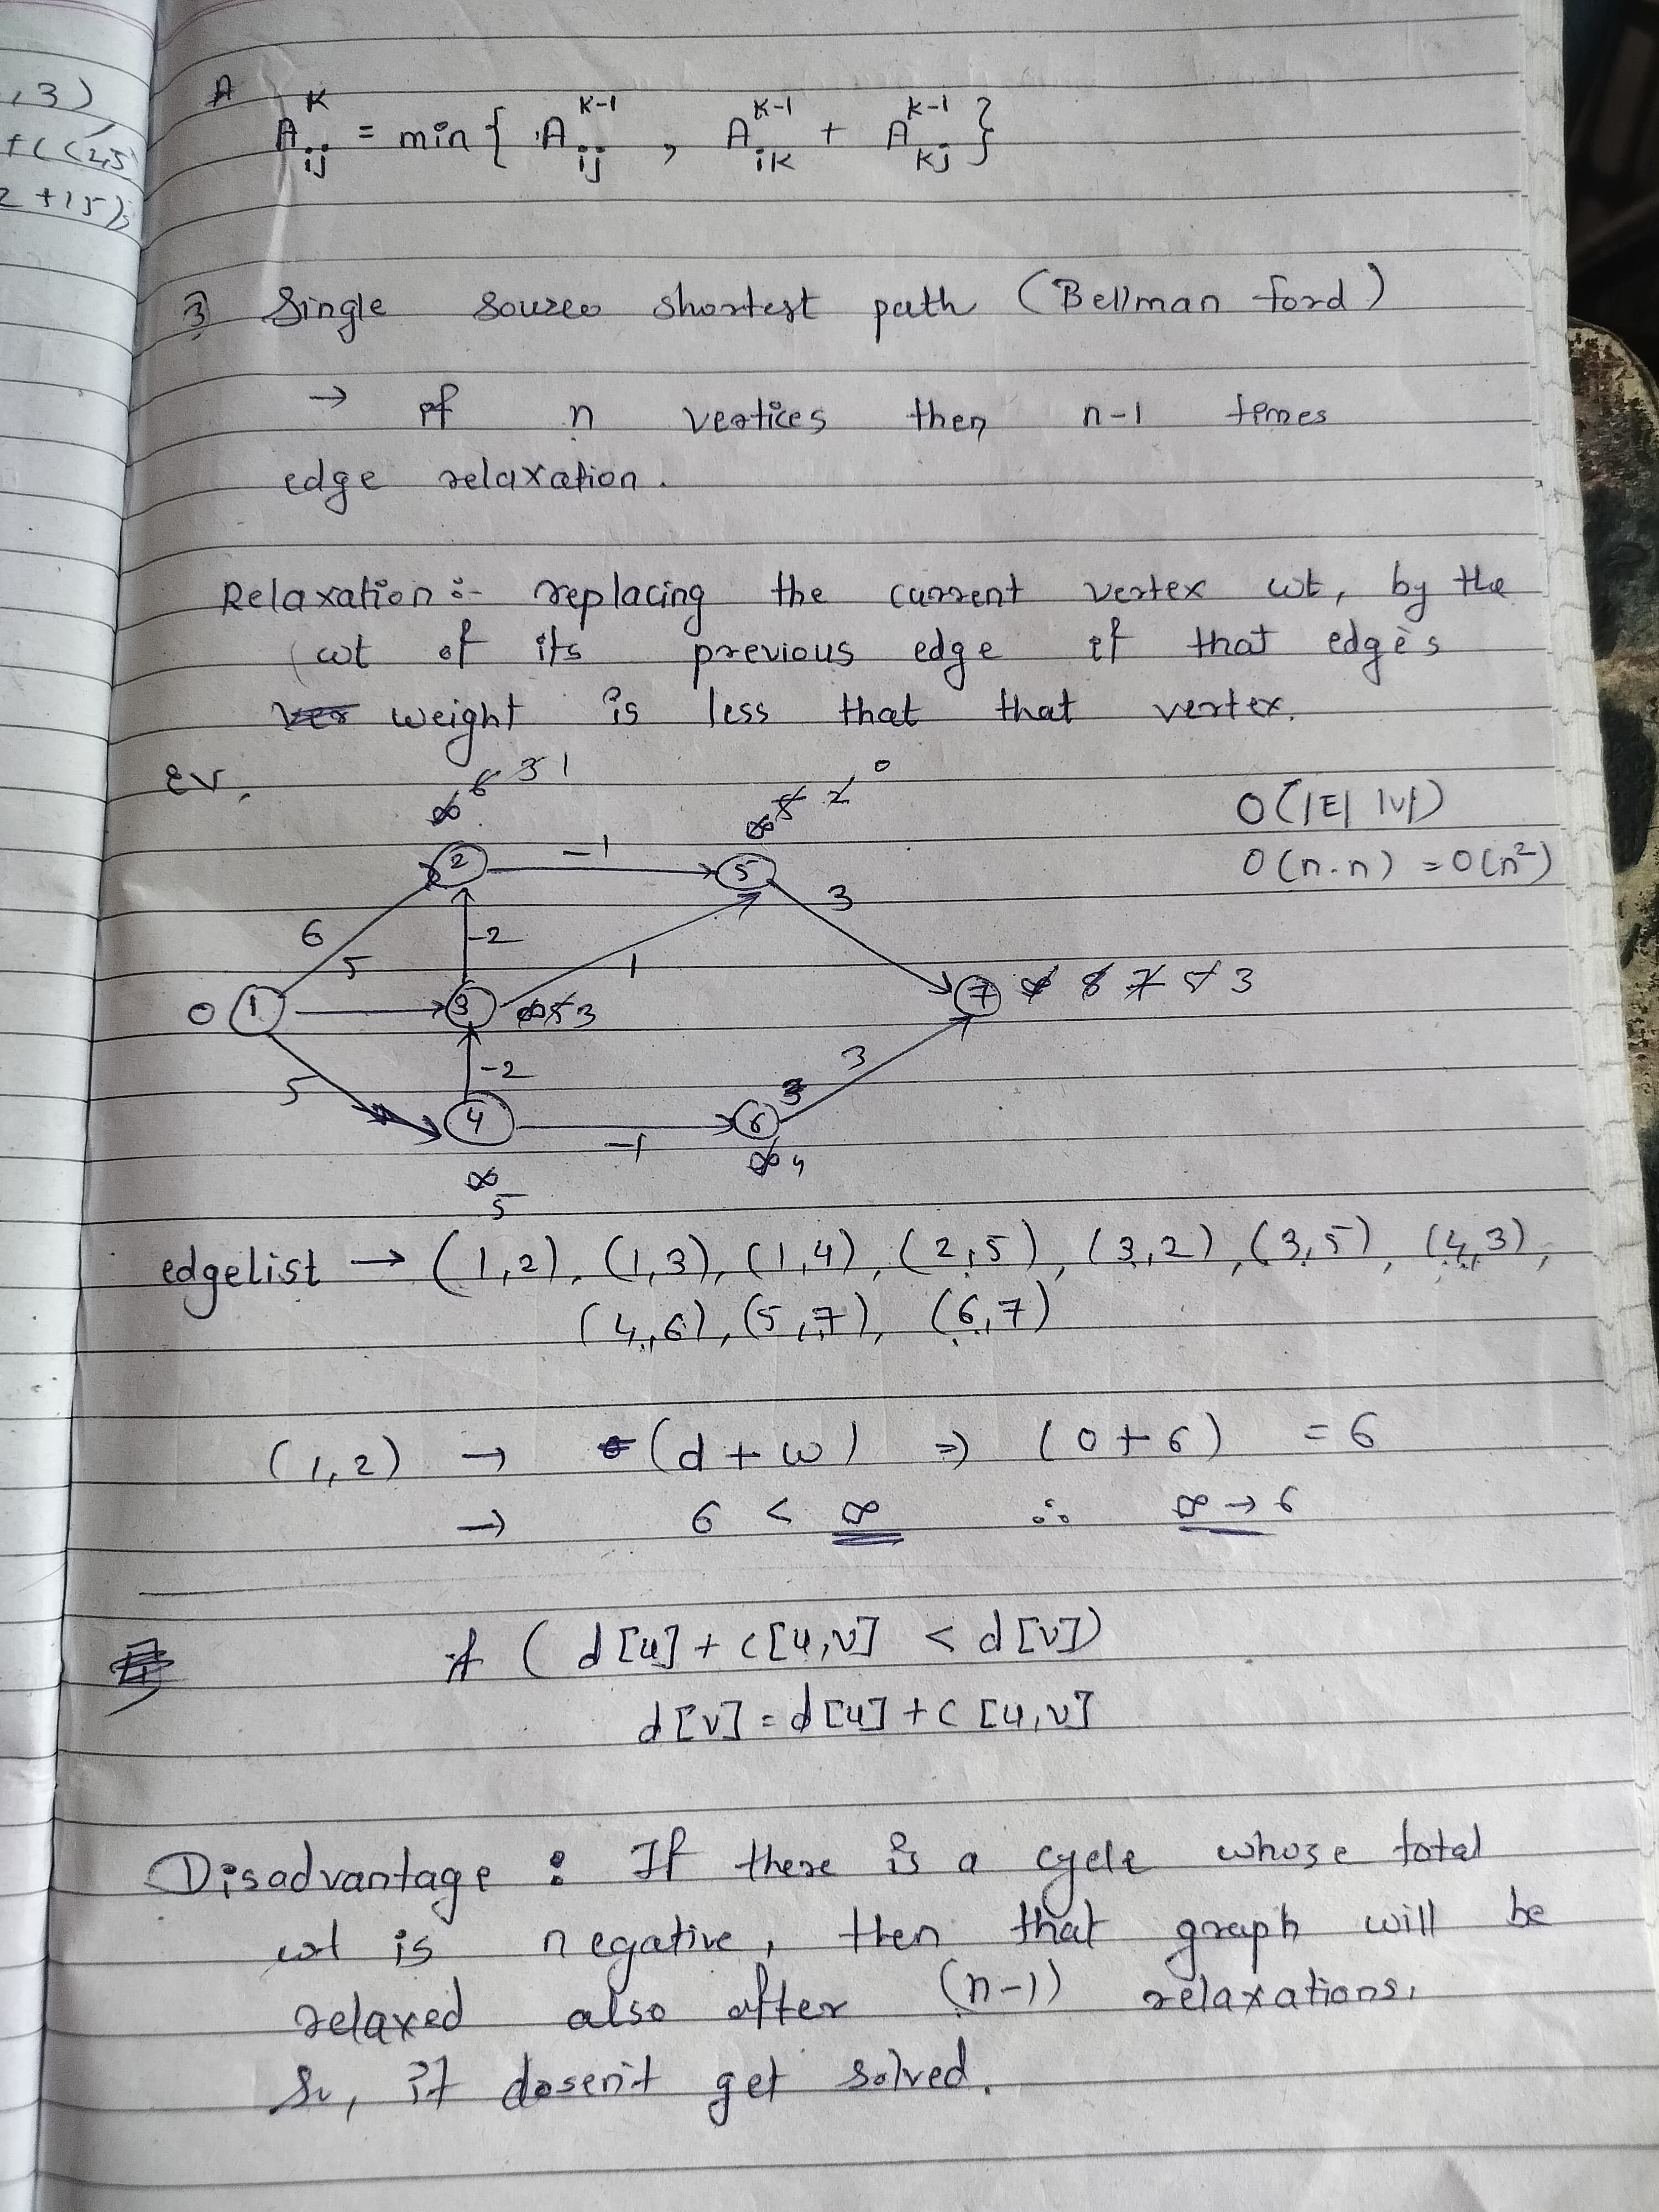 ,3)
+((2,5)
2 +15),
A
A^K_ij = min { A^{K-1}_ij , A^{K-1}_iK + A^{K-1}_Kj }
3) Single source shortest path (Bellman ford)
→ if n vertices then n-1 times
edge relaxation.
Relaxation :- replacing the current vertex wt, by the
wt of its previous edge if that edge's
weight is less that that vertex.
∞ 6 3 1
∞ 5 2 0
O(|E| |V|)
O(n.n) = O(n²)
2 -1 5
6 -2 3
5 1
0 1 3 ∞ 5 3 7 8 7 5 3
5 -2 3
4 -1 6 3
∞ 5
∞ 4
edgelist → (1,2), (1,3), (1,4), (2,5), (3,2), (3,5), (4,3),
(4,6), (5,7), (6,7)
(1,2) → (d + w) ⇒ (0+6) = 6
→ 6 < ∞ ∴ ∞ → 6
if ( d[u] + c[u,v] < d[v])
d[v] = d[u] + c[u,v]
Disadvantage : If there is a cycle whose total
wt is negative, then that graph will be
relaxed also after (n-1) relaxations.
So, it dosen't get solved.